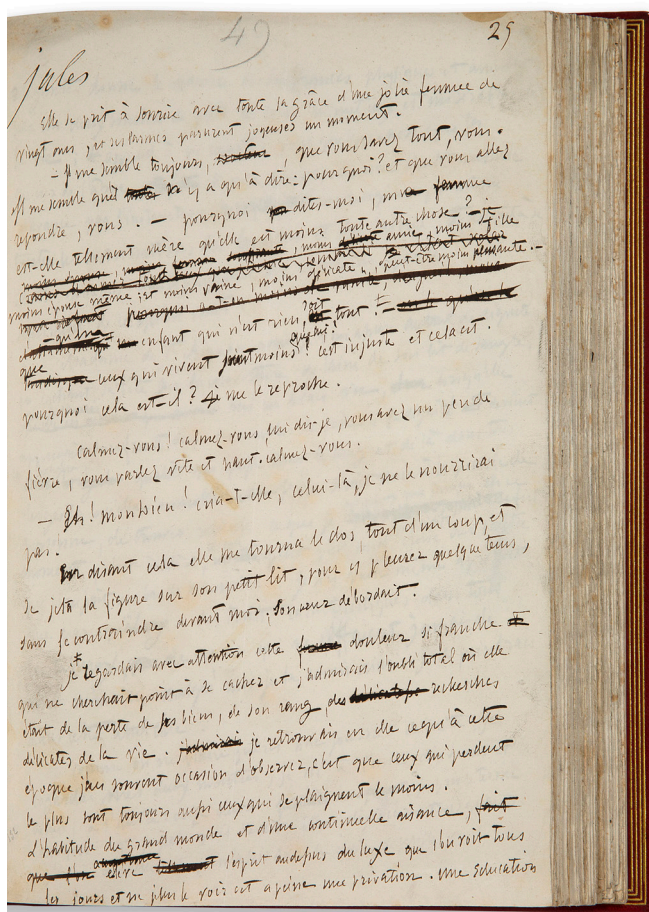 49
25
jules
Elle se prit à sourire avec toute la grâce d'une jolie femme de
vingt ans, et ses larmes parurent joyeuses un moment.
- Il me semble toujours, , que vous savez tout, vous.
Il me semble qu'il n'y a qu'à dire : pourquoi ? et que vous allez
répondre, vous. - pourquoi dites-moi, une femme
est-elle tellement mère qu'elle est moins toute autre chose ? - je
moins amie, moins fille
moins épouse même, et moins vaine, moins délicate, peut-être moins pensante.
enfant qui n'est rien, soit tout ! -
que ceux qui vivent soient moins que lui ! c'est injuste et cela est.
pourquoi cela est-il ? je me le reproche.
calmez-vous ! calmez-vous, lui dis-je, vous avez un peu de
fièvre, vous parlez vite et haut. calmez-vous.
- Eh ! monsieur ! cria-t-elle, celui-là, je ne le nourrirai
pas !
En disant cela elle me tourna le dos, tout d'un coup, et
se jeta la figure sur son petit lit, pour y pleurer quelque tems,
sans se contraindre devant moi, son cœur débordait.
je regardais avec attention cette douleur si franche
qui ne cherchait point à se cacher et j'admirais l'oubli total où elle
était de la perte de ses biens, de son rang, des recherches
délicates de la vie. je retrouvais en elle ce qu'à cette
époque j'eus souvent occasion d'observer, c'est que ceux qui perdent
le plus sont toujours aussi ceux qui se plaignent le moins.
l'habitude du grand monde et d'une continuelle aisance,
élève l'esprit au dessus du luxe que l'on voit tous
les jours et ne plus le voir est à peine une privation. une éducation